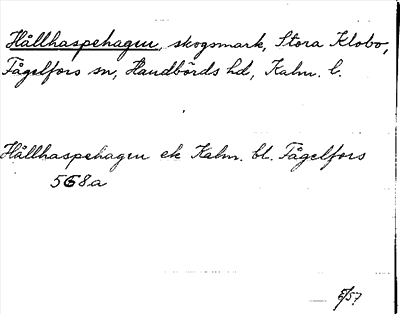 Hållhaspehagen, skogsmark, Stora Klobo,
Fågelfors sn, Handbörds hd, Kalm. l.
Hållhaspehagen ek Kalm. bl. Fågelfors
568a
/57